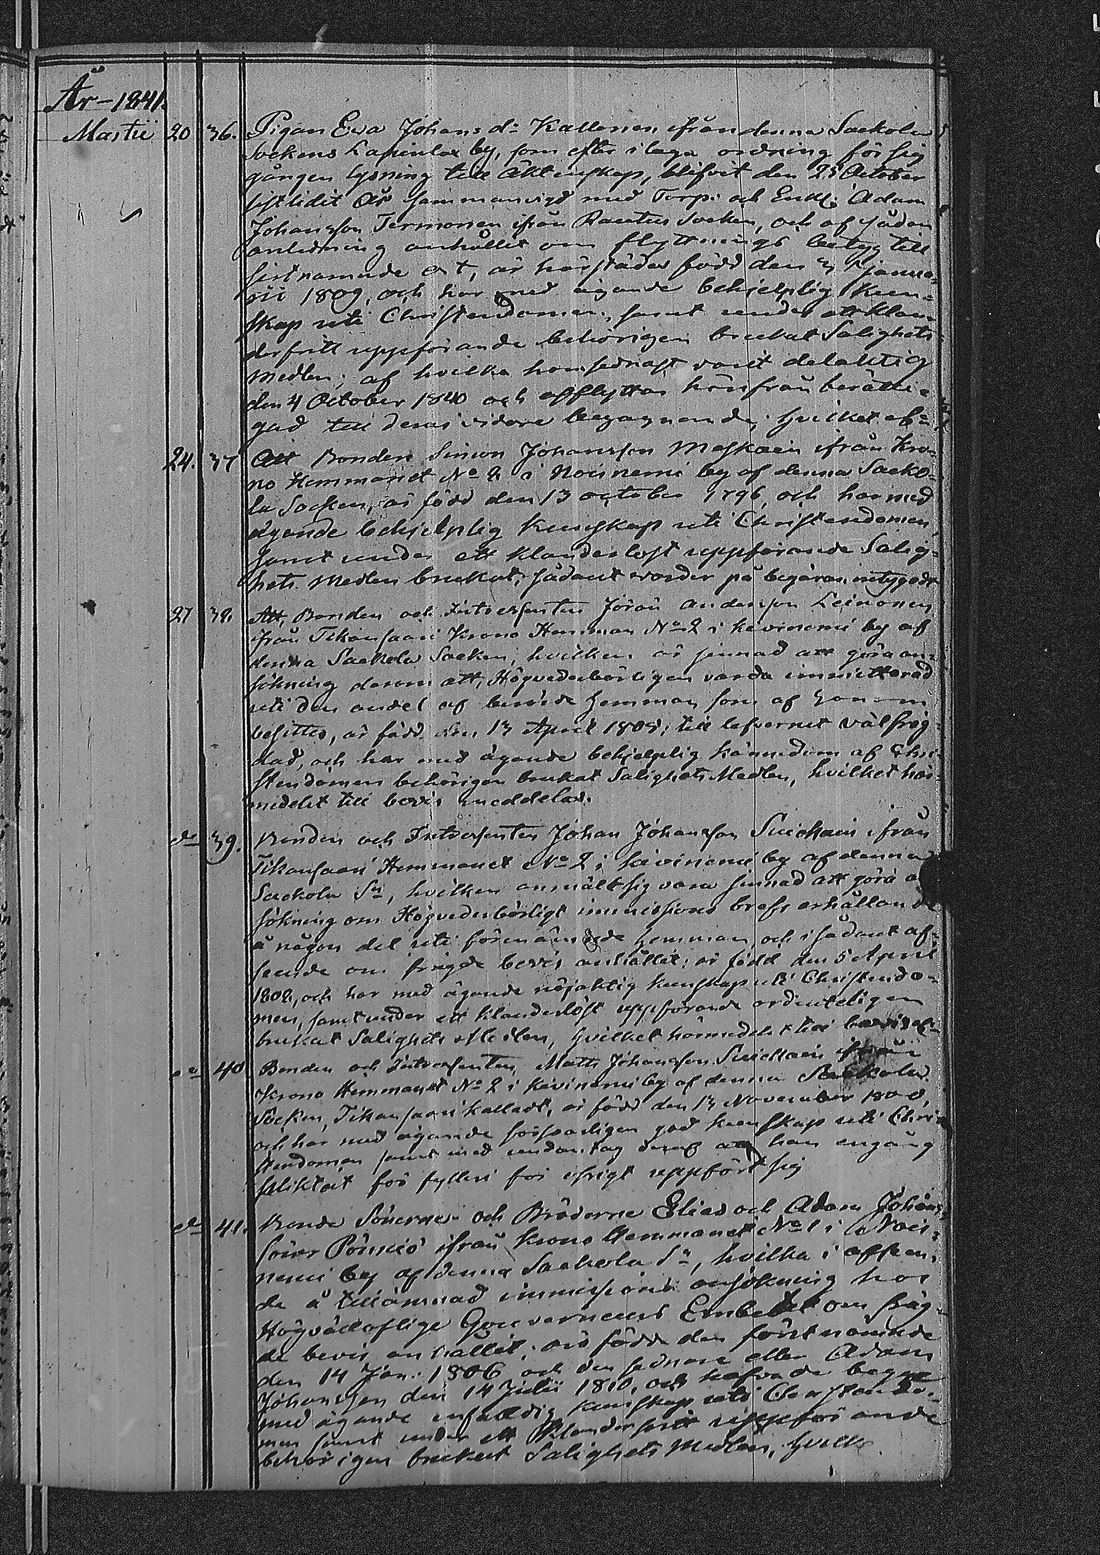 År - 1841.
Martii 20 36. Pigan Eva Johans dr Kallonen ifrån denna Sackola
Sockens Lapinlax by, som efter i laga ordning för sig
gången lysning till Äktenskap, blifvit den 25 October
sistlidit År Sammanvigd med Torp: och Enkl: Adam
Johansson Termonen ifrån Rautus Socken, och af sådan
anledning anhållit om flyttnings betyg till
sistnämnde ort, är härstädes född den Janua-
rii 1809, och har med ägande behjelplig kun-
skap uti Christendomen, samt under ett klan-
derfritt uppförande behörigen brukat Salighets
Medlen; af hvilka hon sednast varit delaktig
den 4 October 1840 och afflyttar härifrån berätti-
gad till deras vidare begagnande; hvilket
24. 37 Att Bonden Simon Johansson Meskain ifrån Kro-
no Hemmanet No 2 i Noisnemi by af denna Sacko-
la Socken, är född den 13 october 1796, och har med
ägande behjelplig kunskap uti Christendomen,
samt under ett klanderlöst uppförande Salig-
hets Medlen brukat; sådant varder på begäran intygadt
27 38. Att Bonden och Intressenten Jöran Andersson Leinonen
ifrån Tikansaari Krono Hemman No 2 i Kivinemi by af
denna Sackola Socken, hvilken är sinnad att göra an-
sökning derom att Högvederbörligen varda immitterad
uti den andel af berörde Hemman som af honom
besittes, är född den 13 April 1808; till lefvernet välfrej-
dad, och har med ägande behjelplig kännedom af Chri-
stendomen behörigen brukat Salighets Medlen, hvilket här-
medelst till bevis meddelas.
do 39. Bonden och Intressenten Johan Johansson Suickain ifrån
Tikansaari Hemmanet No 2 i Kivinemi by af denna
Sackola Sn, hvilken anmält sig vara sinnad att göra
sökning om Högvederbörligt immissions brefs erhållande
å någon del uti förenämnde Hemman, och i sådant af-
seende om frejde bevis anhållit; är född den 5 April
1802, och har med ägande nöjaktig kunskap uti Christendo-
men, samt under ett klanderlöst uppförande ordenteligen
brukat Salighets Medlen, hvilket härmedelst till
do 40 Bonden och Intressenten Matts Johansson Suickain ifrån
Krono Hemmanet No 2 i Kivinemi by af denna Sackola
Socken, Tikansaari kalladt, är född den 13 November 1808,
och har med ägande försvarligen god kunskap uti Chri-
stendomen samt med undantag deraf att han en gång
pliktat för fylleri för öfrigt uppfört sig
do 41. Bonde Sönerne och Bröderne Elias och Adam Johans
söner Pönniö ifrån Krono Hemmanet No 1 i Nois-
nemi by af denna Sackola Sn, hvilka i afseen-
de å tillämnad immissions ansökning hos
Högvällofliga Gouverneurs Embetet om fräg-
de bevis anhållit; äro födde den förstnämnde
den 14 Jan. 1806 och den sednare eller Adam
Johansson den 14 Julii 1810, och hafva de begge
med ägande enfaldig kunskap uti Christendo-
men samt under ett klanderfritt uppförande
behörigen brukat Salighets Medlen, hvilk